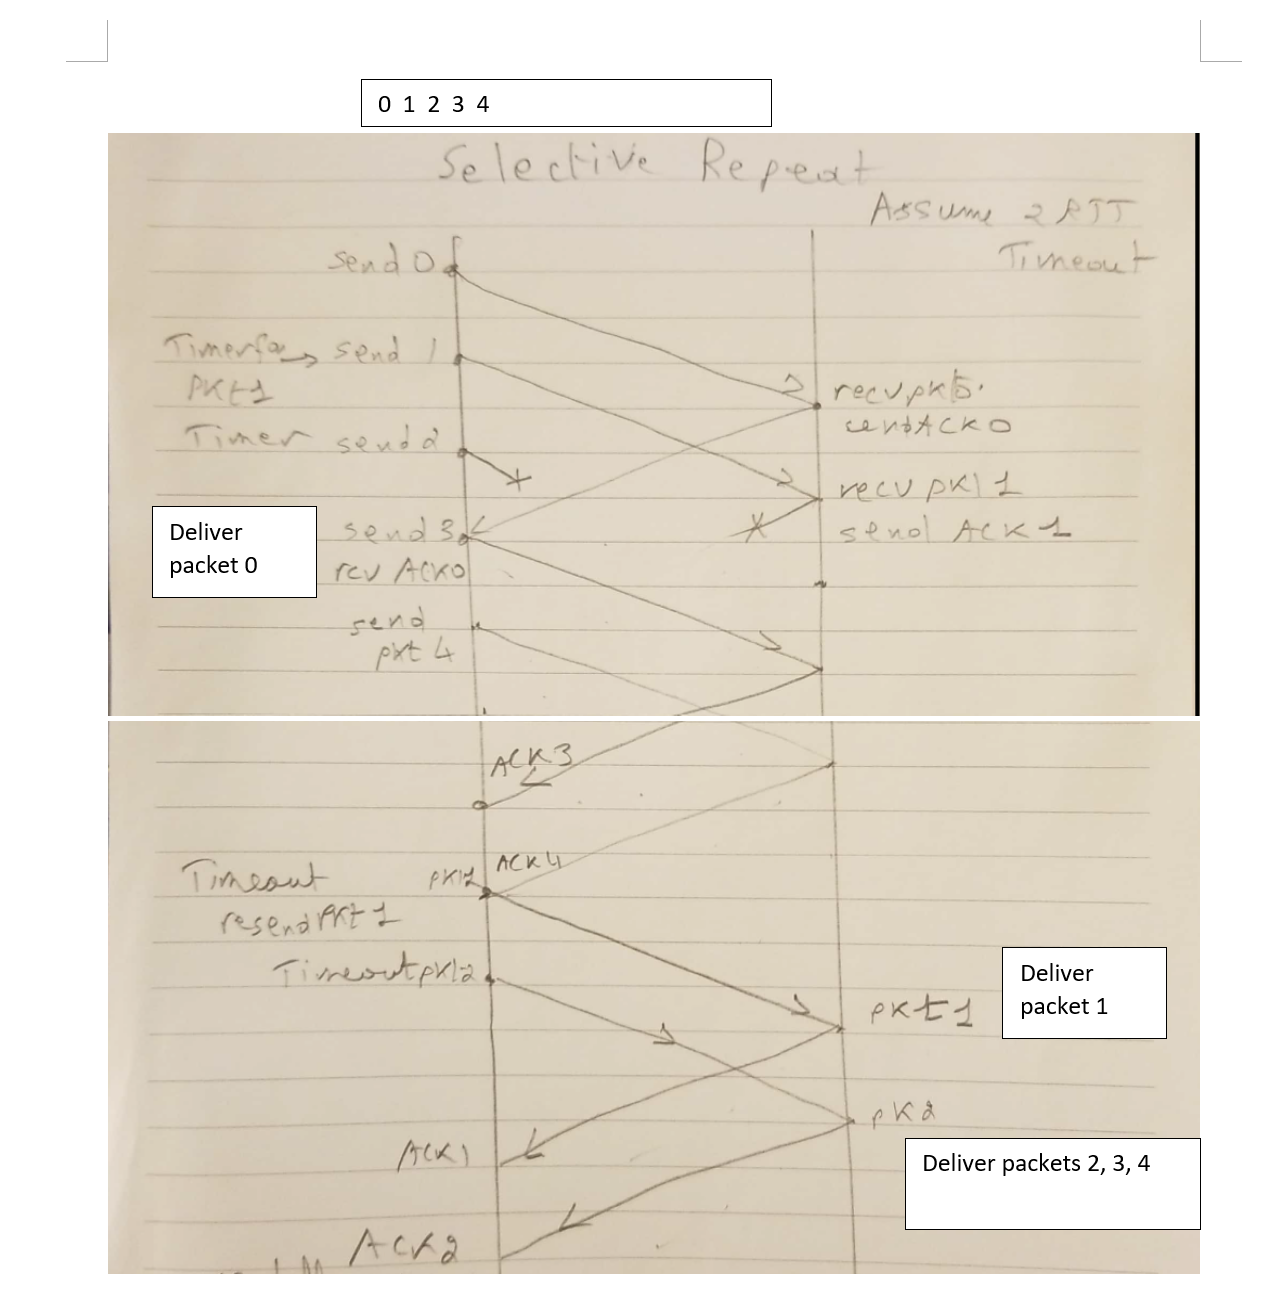 0 1 2 3 4
Selective Repeat
Assume 2 RTT
Timeout
send 0
Timer for → send 1
PKt1
recv pkt0.
send ACK 0
Timer send 2
recv pkt 1
send ACK 1
Deliver
packet 0
send 3
rcv ACK0
send
pkt 4
ACK3
ACK4
Timeout pkt1
resend PKt 1
Timeout pkt2
Deliver
packet 1
pkt 1
pk2
Deliver packets 2, 3, 4
ACK1
ACK2